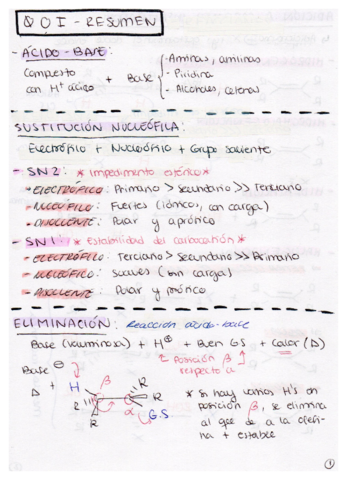 QOI - RESUMEN
- ÁCIDO-BASE:
Compuesto con H⁺ ácido + Base
- Aminas, anilinas
- Piridina
- Alcoholes, cetonas
SUSTITUCIÓN NUCLEÓFILA:
Electrófilo + Nucleófilo + Grupo saliente
- SN2: * Impedimento estérico *
- ELECTRÓFILO: Primario > Secundario >> Terciario
- NUCLEÓFILO: Fuertes (iónicos, con carga)
- DISOLVENTE: Polar y aprótico
- SN1: * Estabilidad del carbocatión *
- ELECTRÓFILO: Terciario > Secundario >> Primario
- NUCLEÓFILO: Suaves (sin carga)
- DISOLVENTE: Polar y prótico
ELIMINACIÓN: Reacción ácido-base
Base (voluminosa) + H⊕ + Buen GS + Calor (Δ)
Posición β respecto a
Base ⊖
+
Δ
H β R
R α R
G.S
* Si hay varios H's en
posición β, se elimina
al que de a la olefi-
na + estable
1